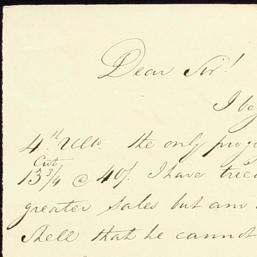 Dear Sir!
I be
4th Ulto. the only prog
Cwt
13 3/4 @ 40/. I have tried
greater sales but am
Shell that he cannot